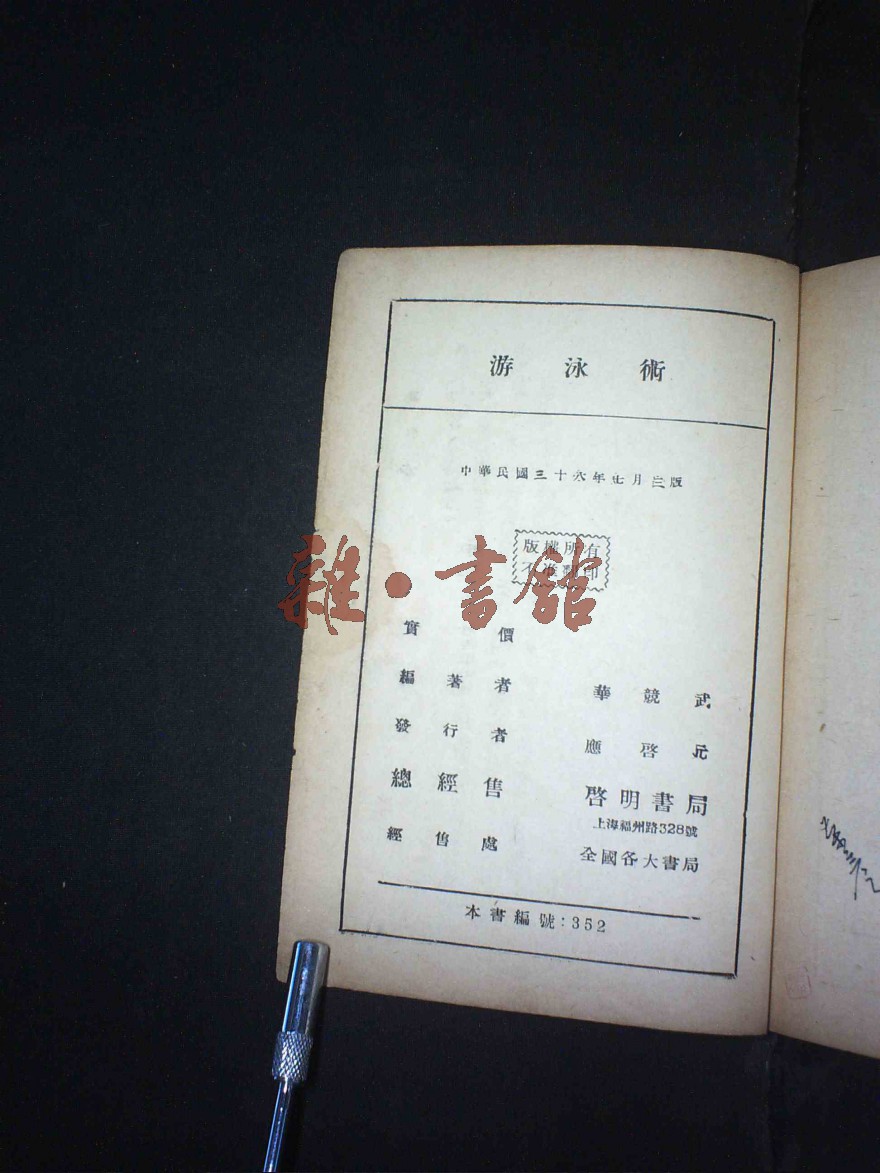 游泳術
中華民國三十六年七月三版
版權所有
不准翻印
雜·書館
實價
編著者 華競武
發行者 應啓元
總經售 啓明書局
上海福州路328號
經售處 全國各大書局
本書編號:352